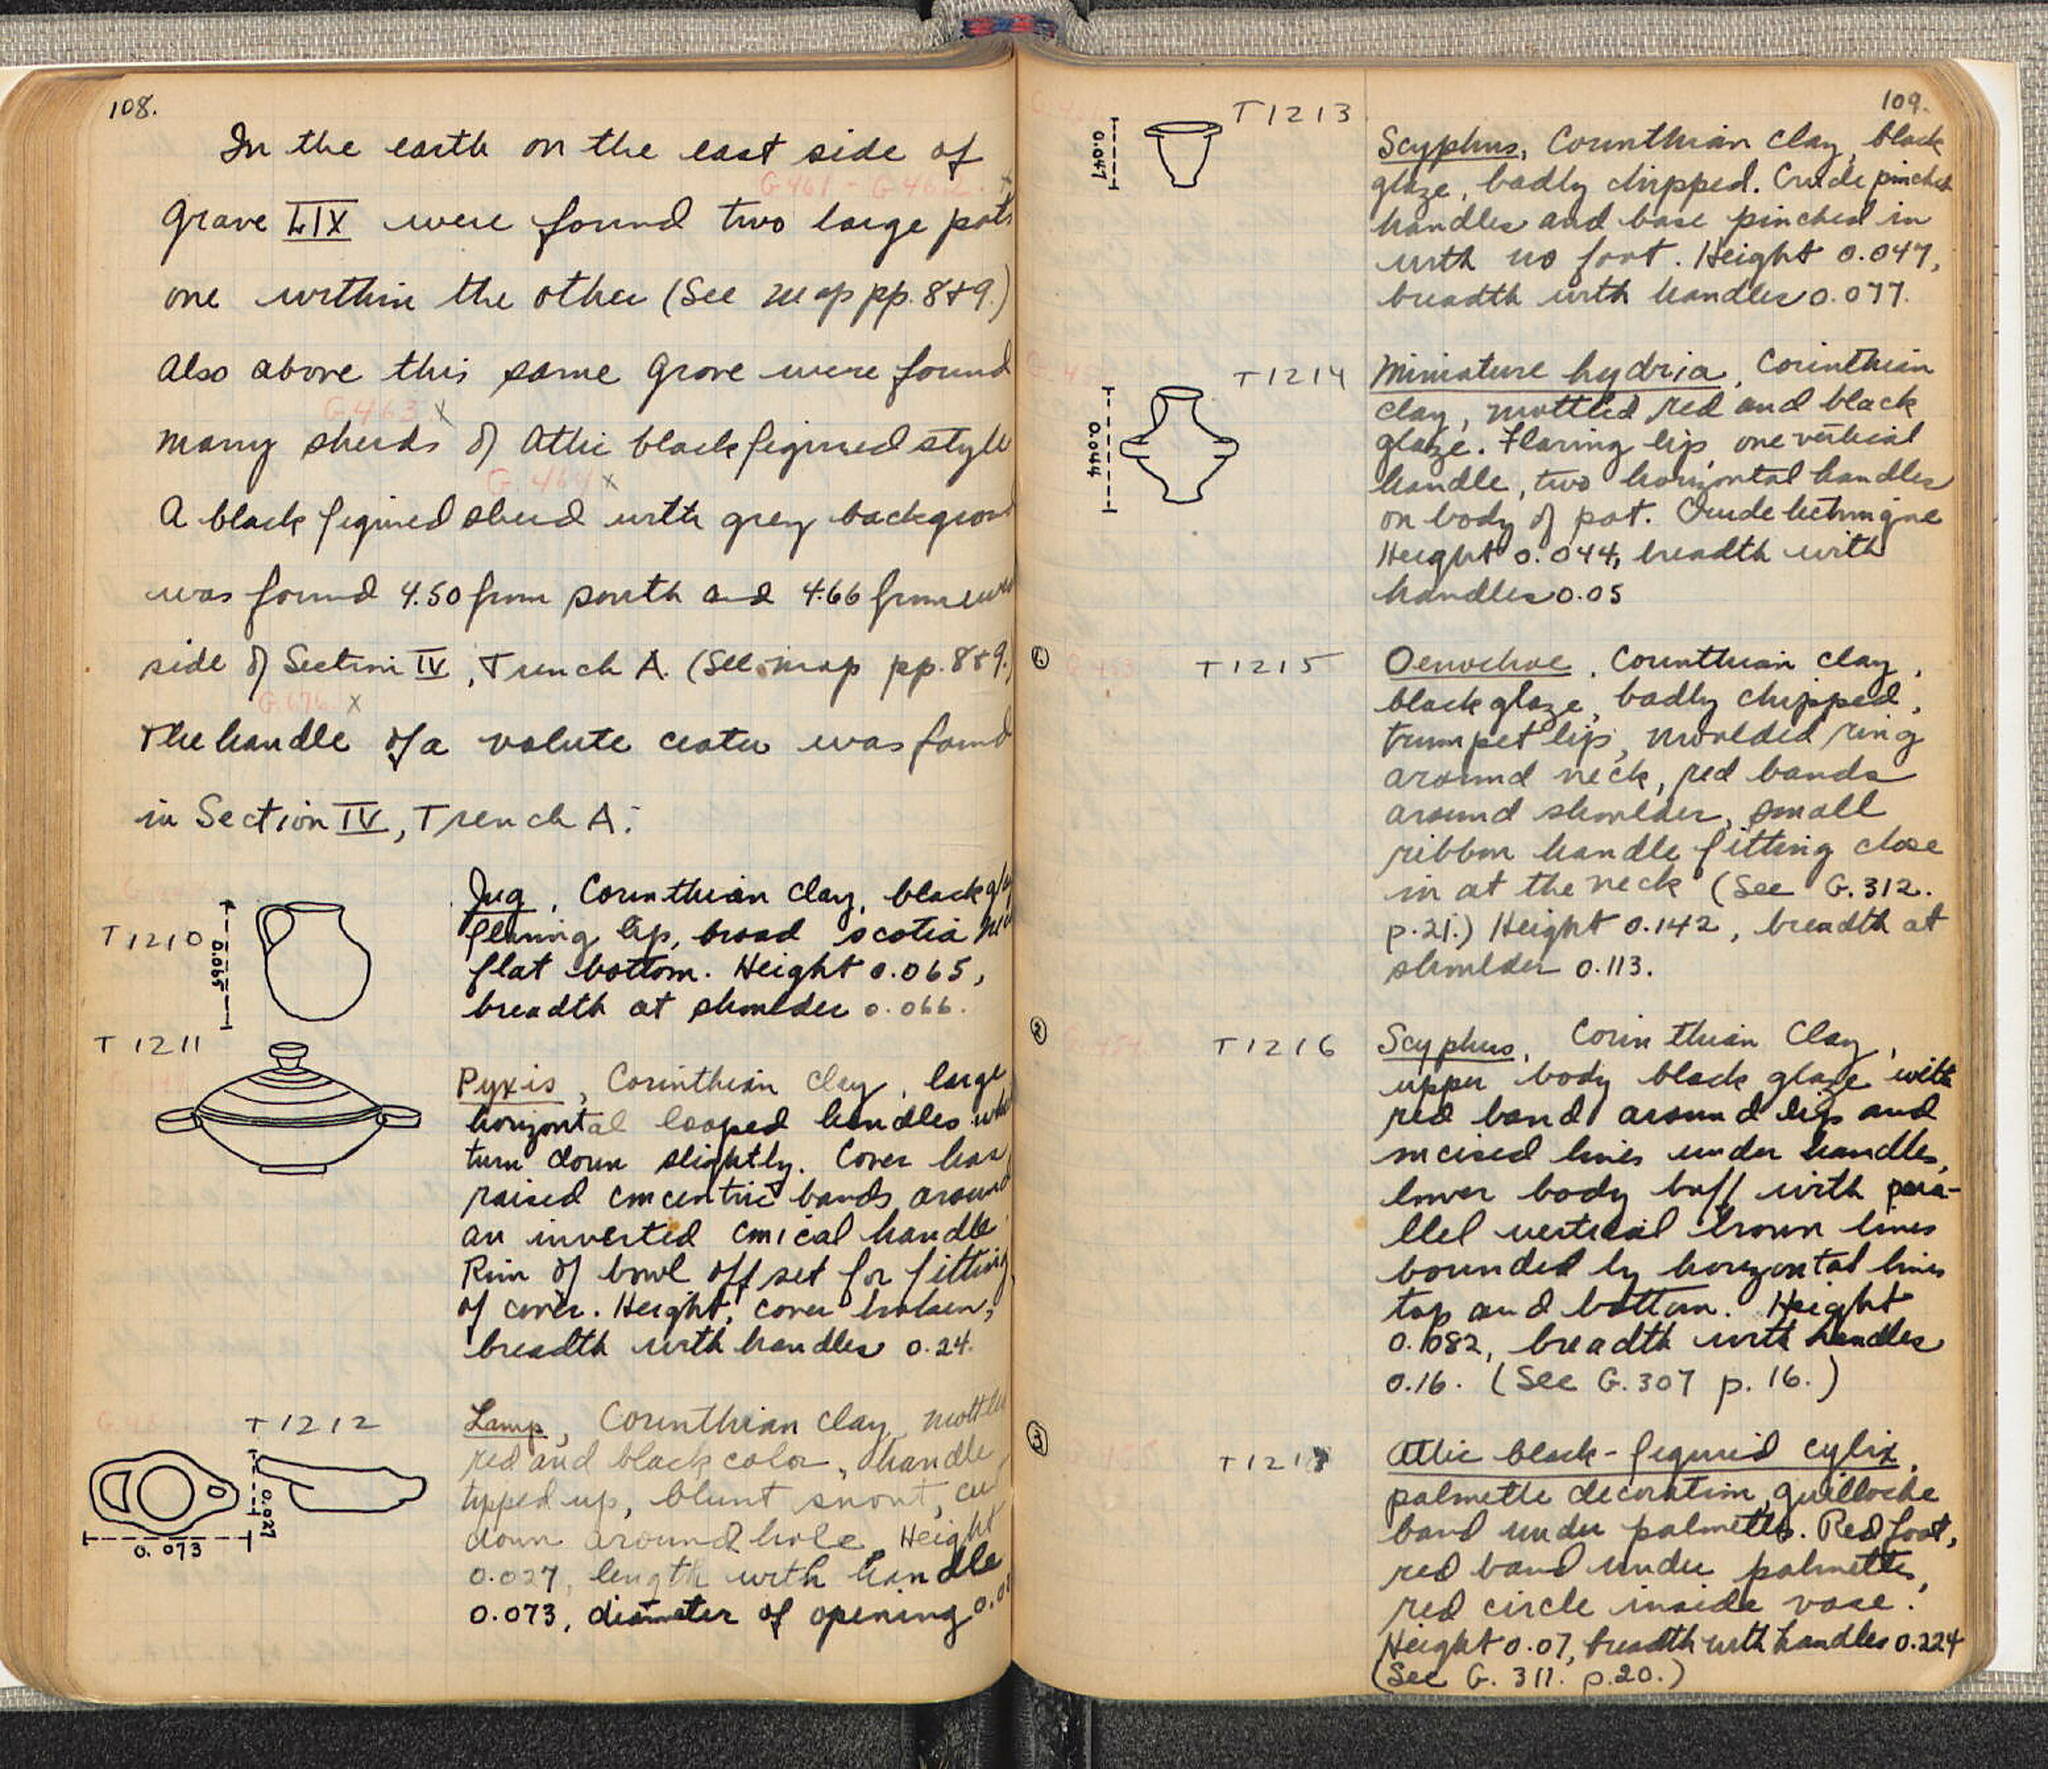 108.
In the earth on the east side of
G461 - G462. x
Grave LIX were found two large pots
one within the other (See map pp. 8+9.)
Also above this same Grave were found
G.463. x
many sherds of Attic black figured style
G.464 x
A black figured sherd with grey background
was found 4.50 from south and 4.66 from
side of Section IV, Trench A. (See map pp. 8+9.)
G.676 x
The handle of a volute crater was found
in Section IV, Trench A.
T1210
0.065
Jug, Corinthian clay, black
flaring lip, broad scotia
flat bottom. Height 0.065,
breadth at shoulder 0.066.
T1211
Pyxis, Corinthian clay, large
horizontal looped handles
turn down slightly. Cover has
raised concentric bands around
an inverted conical handle
Rim of bowl offset for fitting
of cover. Height, cover broken,
breadth with handles 0.24.
T1212
0.027
0.073
Lamp, Corinthian clay, mottled
red and black color, handle
tipped up, blunt snout, cut
down around hole. Height
0.027, length with handle
0.073, diameter of opening
109.
T1213
0.047
Scyphus, Corinthian clay, black
glaze, badly chipped. Crude pinched
handles and base pinched in
with no foot. Height 0.047,
breadth with handles 0.077.
T1214
0.044
Miniature hydria, Corinthian
clay, mottled red and black
glaze. Flaring lip, one vertical
handle, two horizontal handles
on body of pot. Crude technique
Height 0.044, breadth with
handles 0.05
1
G.453
T1215
Oenochoe, Corinthian clay,
black glaze, badly chipped,
trumpet lip, moulded ring
around neck, red bands
around shoulder, small
ribbon handle fitting close
in at the neck (See G.312.
p.21.) Height 0.142, breadth at
shoulder 0.113.
2
G.454
T1216
Scyphus, Corinthian Clay,
upper body black glaze with
red band around lip and
incised lines under handles,
lower body buff with para-
llel vertical brown lines
bounded by horizontal lines
top and bottom. Height
0.082, breadth with handles
0.16. (See G.307 p. 16.)
3
G.455
T1217
Attic black-figured cylix,
palmette decoration, guilloche
band under palmettes. Red foot,
red band under palmettes,
red circle inside vase.
Height 0.07, breadth with handles 0.224
(See G. 311. p.20.)